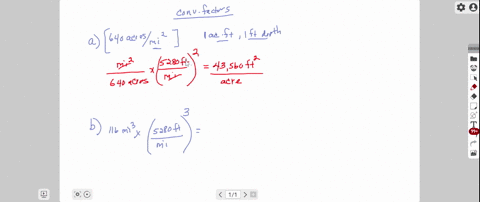 conv. factors
a) [640 acres/mi²] 1 ac.ft, 1 ft depth
mi²/640 acres x (5280ft/mi)² = 43,560 ft²/acre
b) 116 mi³ x (5280ft/mi)³ =
1/1